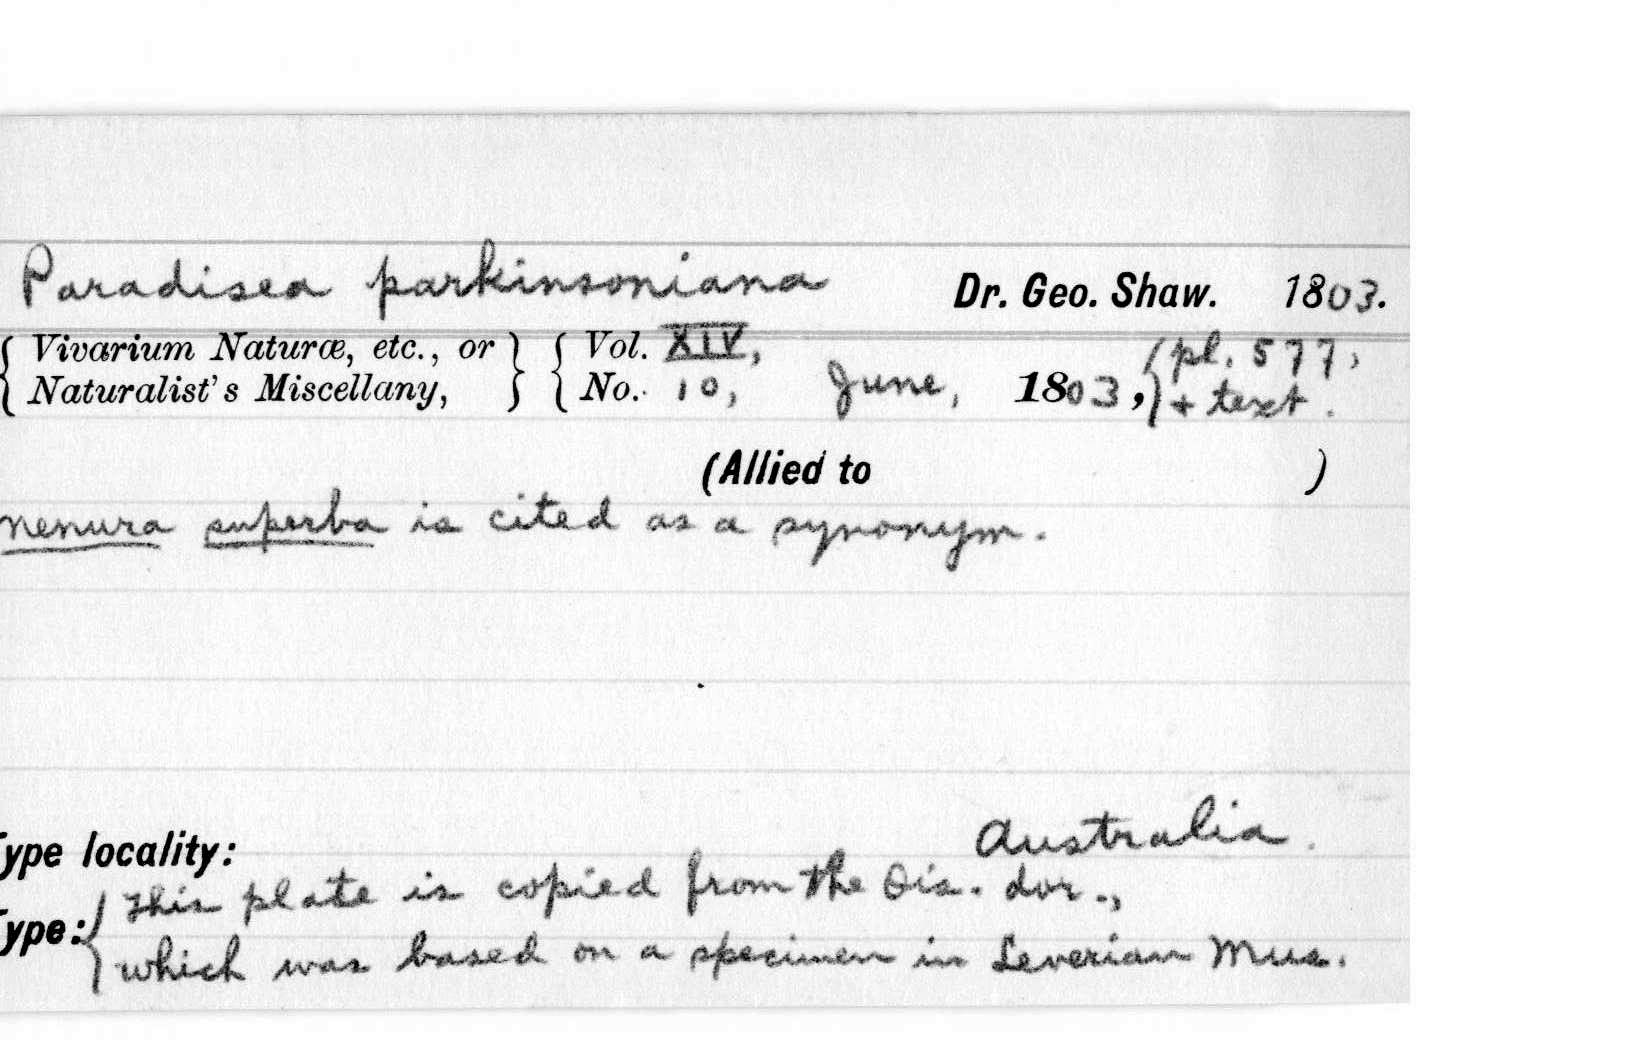 Paradisea parkinsoniana Dr. Geo. Shaw. 1803.
{ Vivarium Naturæ, etc., or } { Vol. XIV, { pl. 577,
{ Naturalist's Miscellany, } { No. 10, June, 1803, { + text.
(Allied to )
menura superba is cited as a synonym.
Australia.
Type locality:
{ This plate is copied from the Ois. dor.,
Type: { which was based on a specimen in Leverian Mus.